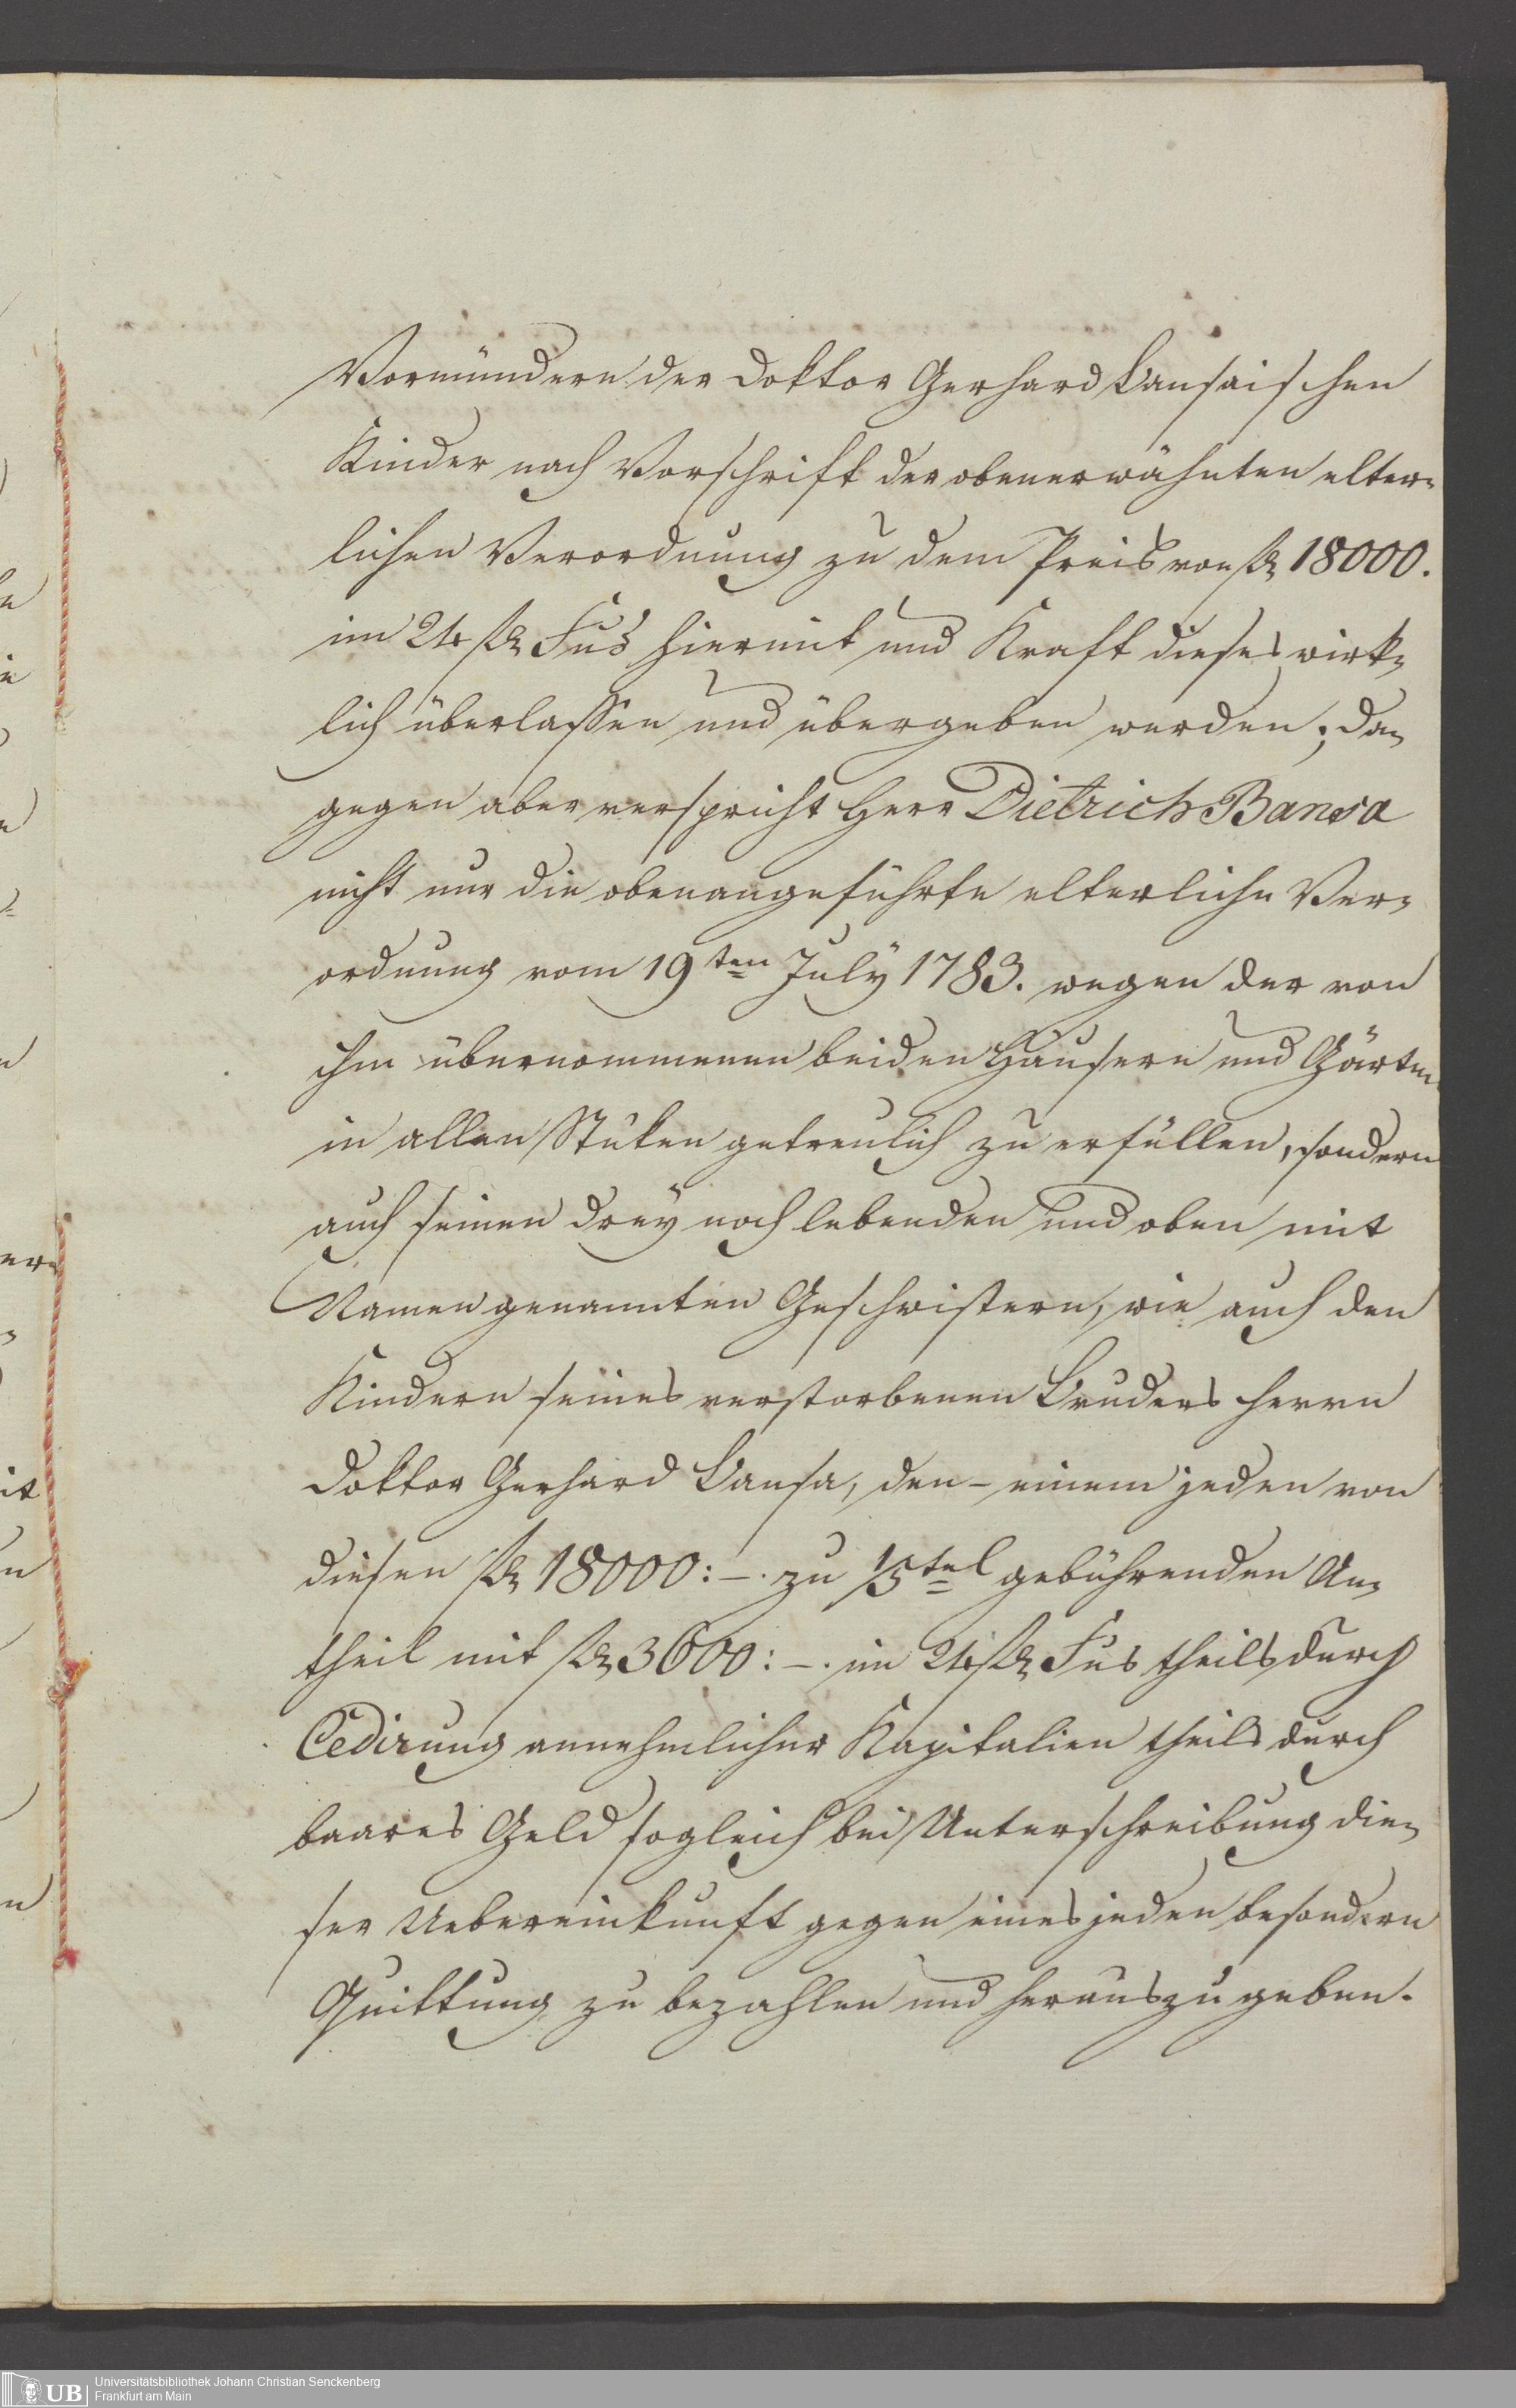 Vormündern der Doktor Gerhard Bansaischen
Kinder nach Vorschrift der obenerwähnten elter-
lichen Verordnung zu dem Preis von fl 18000.
im 24 fl Fus hiermit und Kraft dieses wirk-
lich überlassen und übergeben werden; da-
gegen aber verspricht Herr Dietrich Bansa
nicht nur die obenangeführte elterliche Ver-
ordnung vom 19ten July 1783. wegen der von
ihm übernommenen beiden Häusern und Gärten
in allen Stüken getreulich zu erfüllen, sondern
auch seinen drey noch lebenden und oben mit
Namen genannten Geschwistern, wie auch den
Kindern seines verstorbenen Bruders Herrn
Doktor Gerhard Bansa, den - einem jeden von
diesen fl 18000:–. zu 1/5tel gebührenden An-
theil mit fl 3600:–. im 24 fl Fus theils durch
Cedirung annehmlicher Kapitalien theils durch
baares Geld sogleich bei Unterschreibung die-
ser Uebereinkunft gegen eines jeden besondern
Quittung zu bezahlen und herauszugeben.
UB
Universitätsbibliothek Johann Christian Senckenberg
Frankfurt am Main